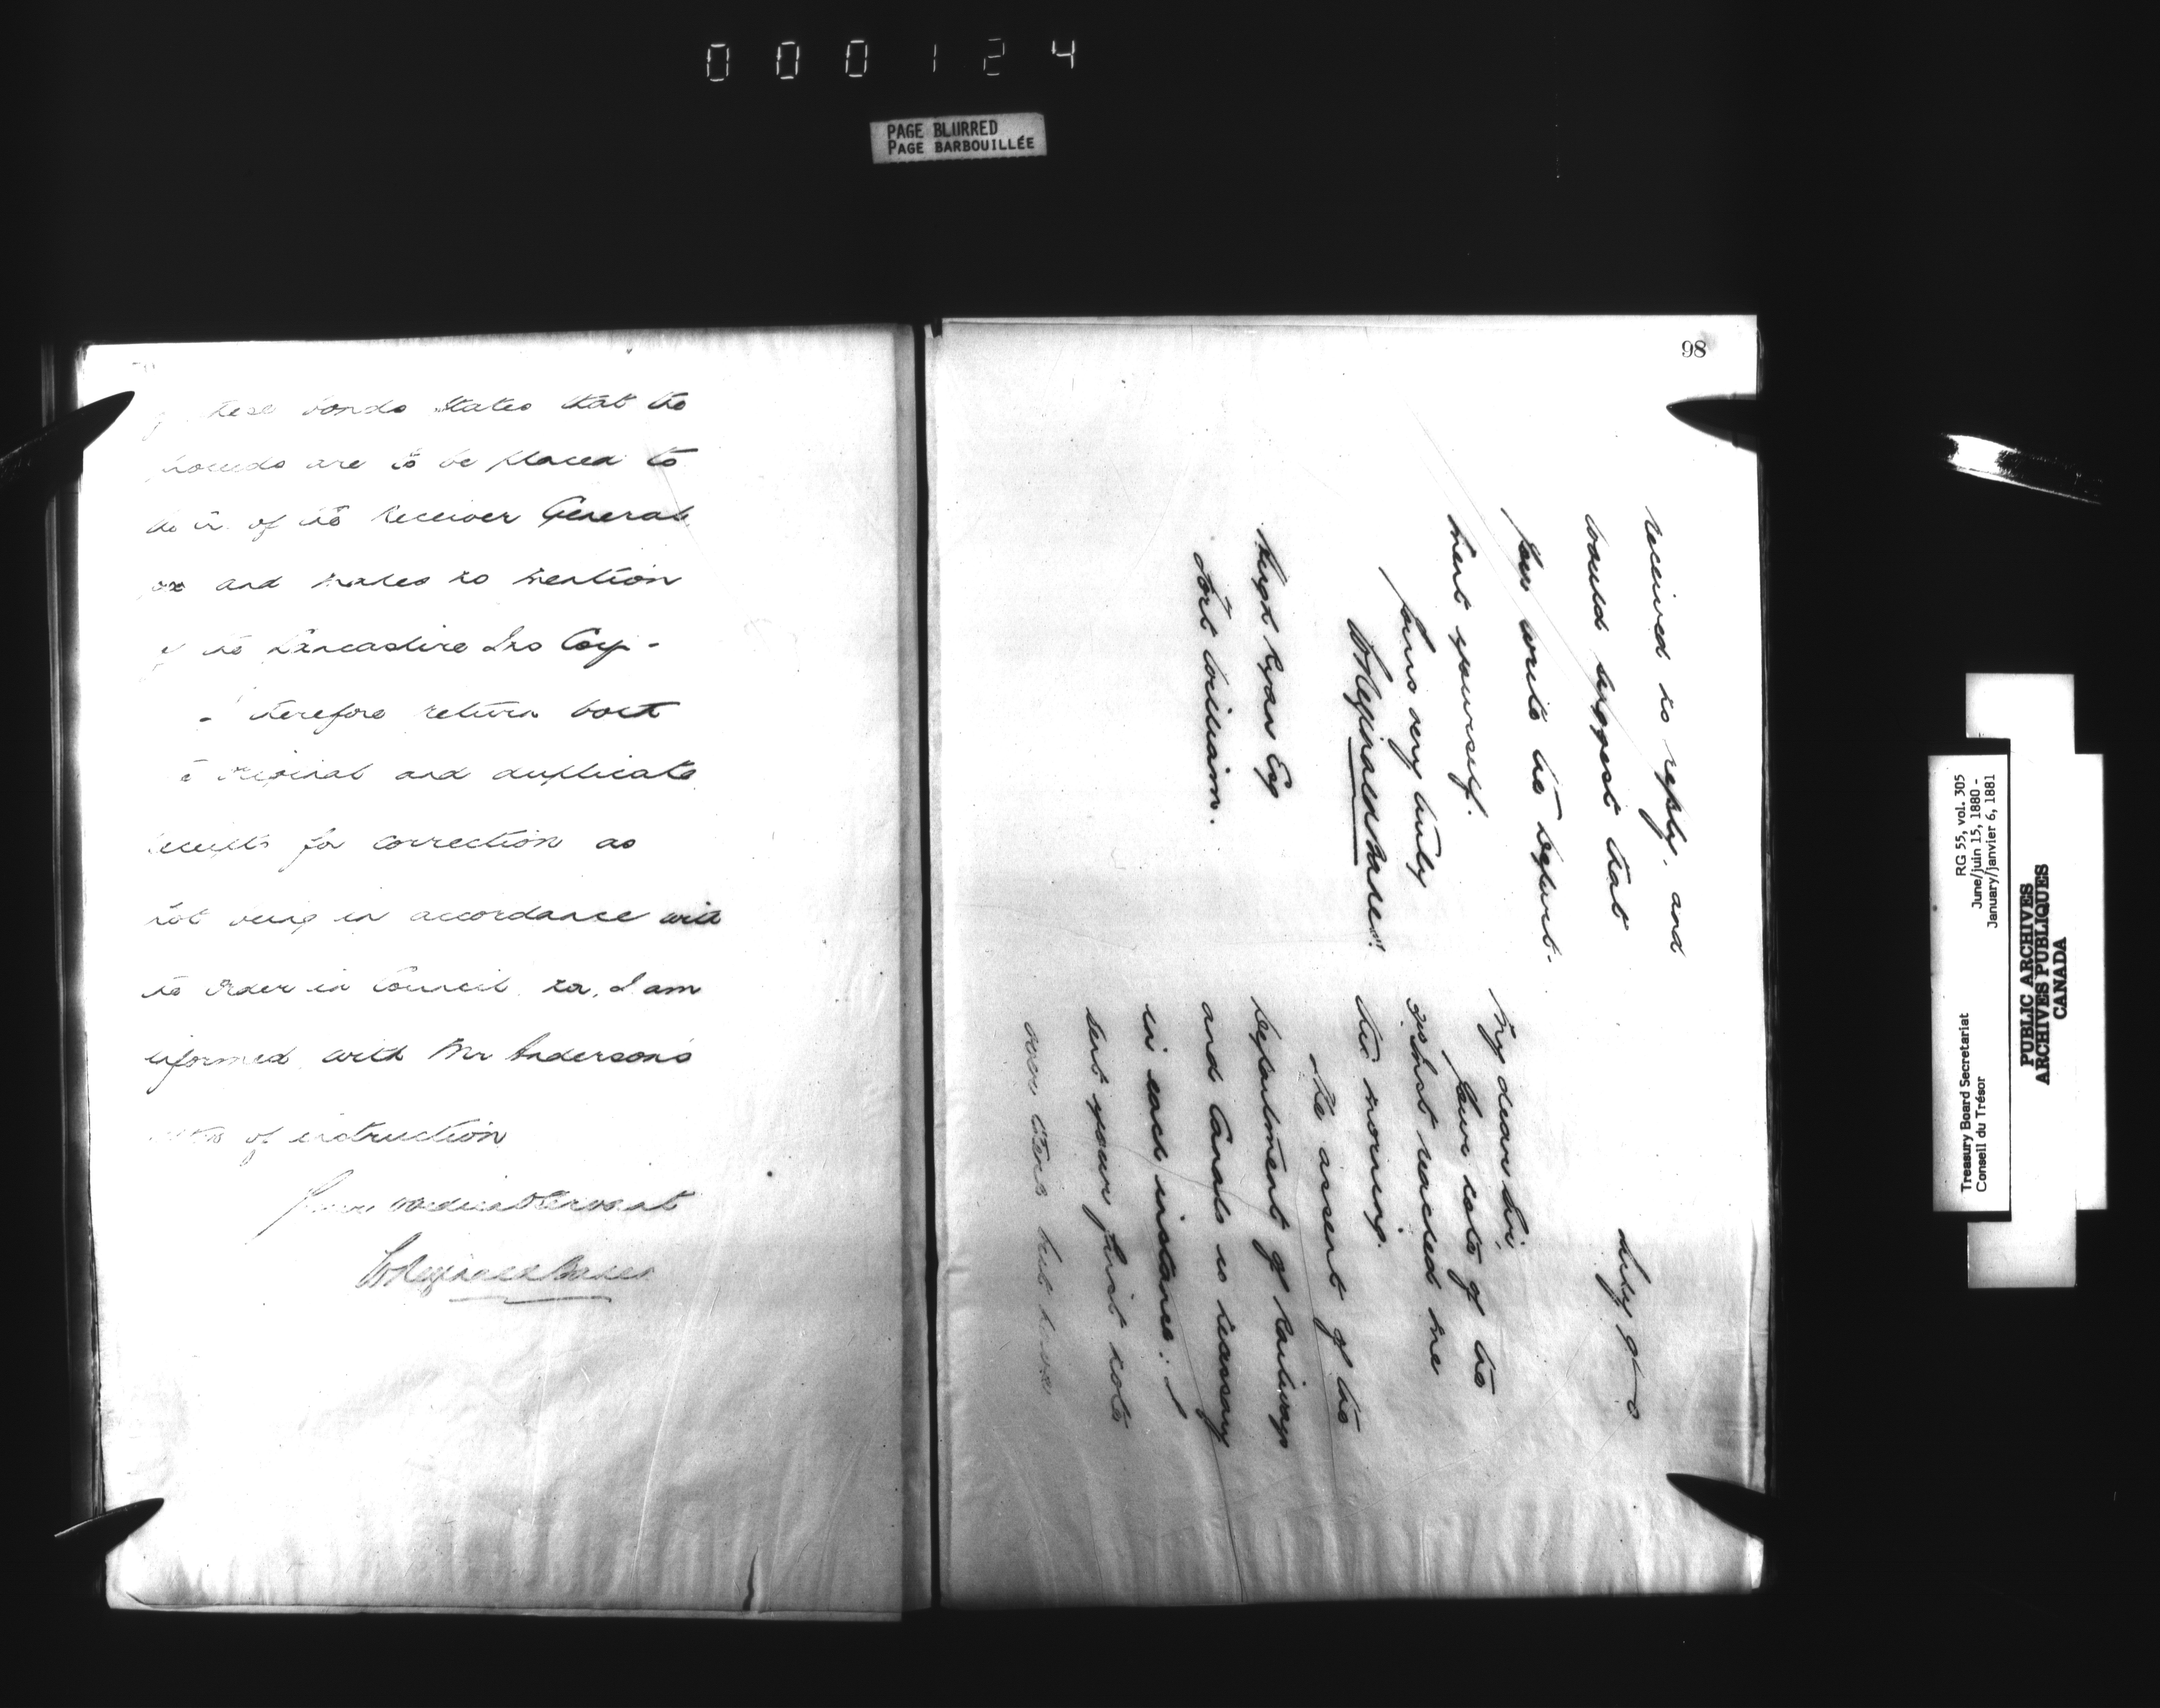 000124
PAGE BLURRED
PAGE BARBOUILLÉE
these bonds states that the
are to be placed to
of the Receiver General
and makes no mention
of the Lancashire Ins Coy -
I therefore return both
original and duplicate
receipts for correction as
not being in accordance with
the Order in Council nor, I am
informed with Mr Anderson's
of instruction
Your obedient Servant
98
July 9
My dear Sir
Your note of the
reached me
this morning.
The assent of the
Department of Railways
and Canals is necessary
in each instance; I
sent your first note
over there but have
received no reply, and
would suggest that
you write the Depart-
ment yourself.
Yours very truly
Hugh Ryan Esq
Fort William.
RG 55, vol. 305
June/juin 15, 1880 -
January/janvier 6, 1881
Treasury Board Secretariat
Conseil du Trésor
PUBLIC ARCHIVES
ARCHIVES PUBLIQUES
CANADA